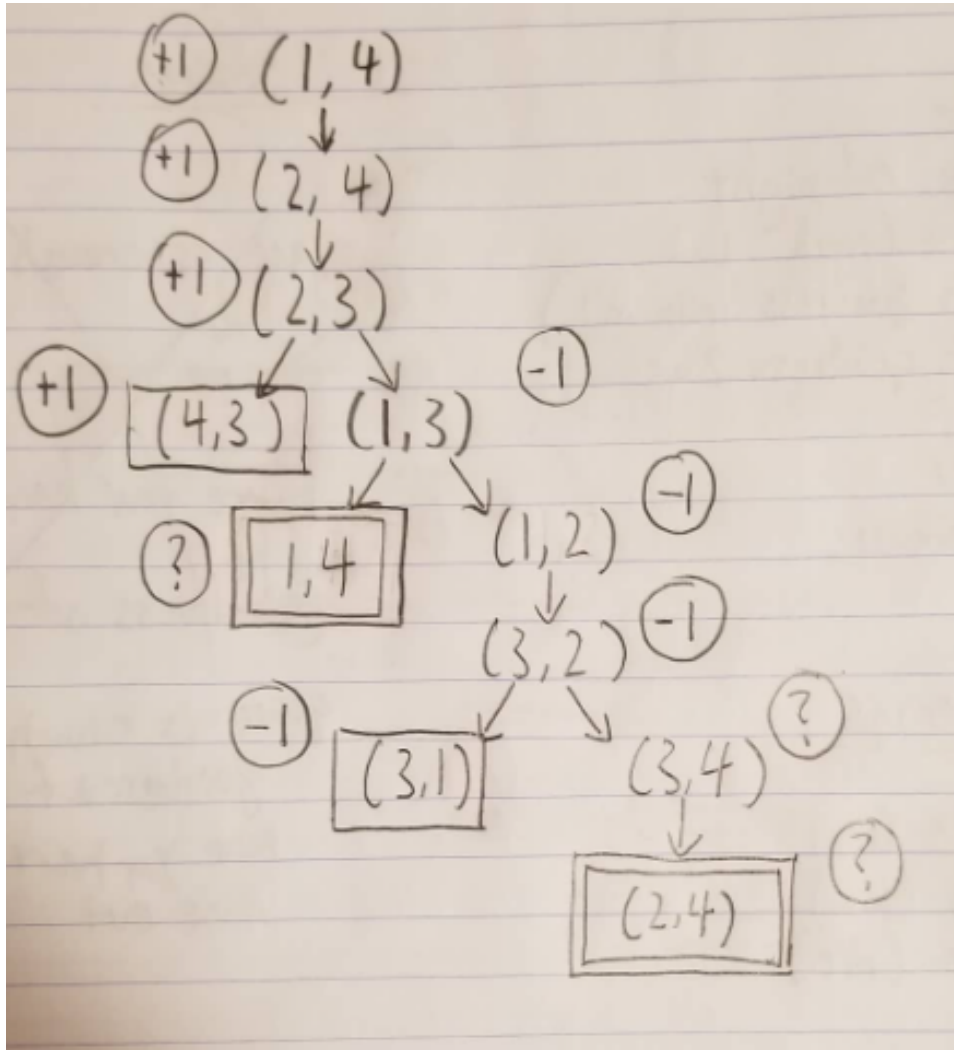 +1 (1, 4)
+1 (2, 4)
+1 (2,3)
+1 (4,3) (1,3) -1
? 1,4 (1,2) -1
(3,2) -1
-1 (3,1) (3,4) ?
(2,4) ?